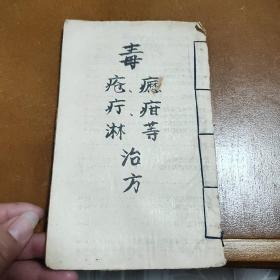 毒
疮、疔、淋
疳等
治方